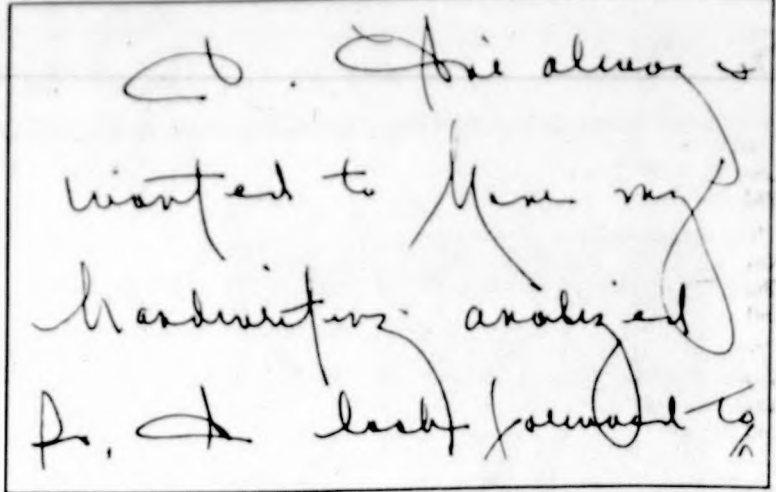 I. I've always
wanted to have my
handwriting analized
So, I look forward to